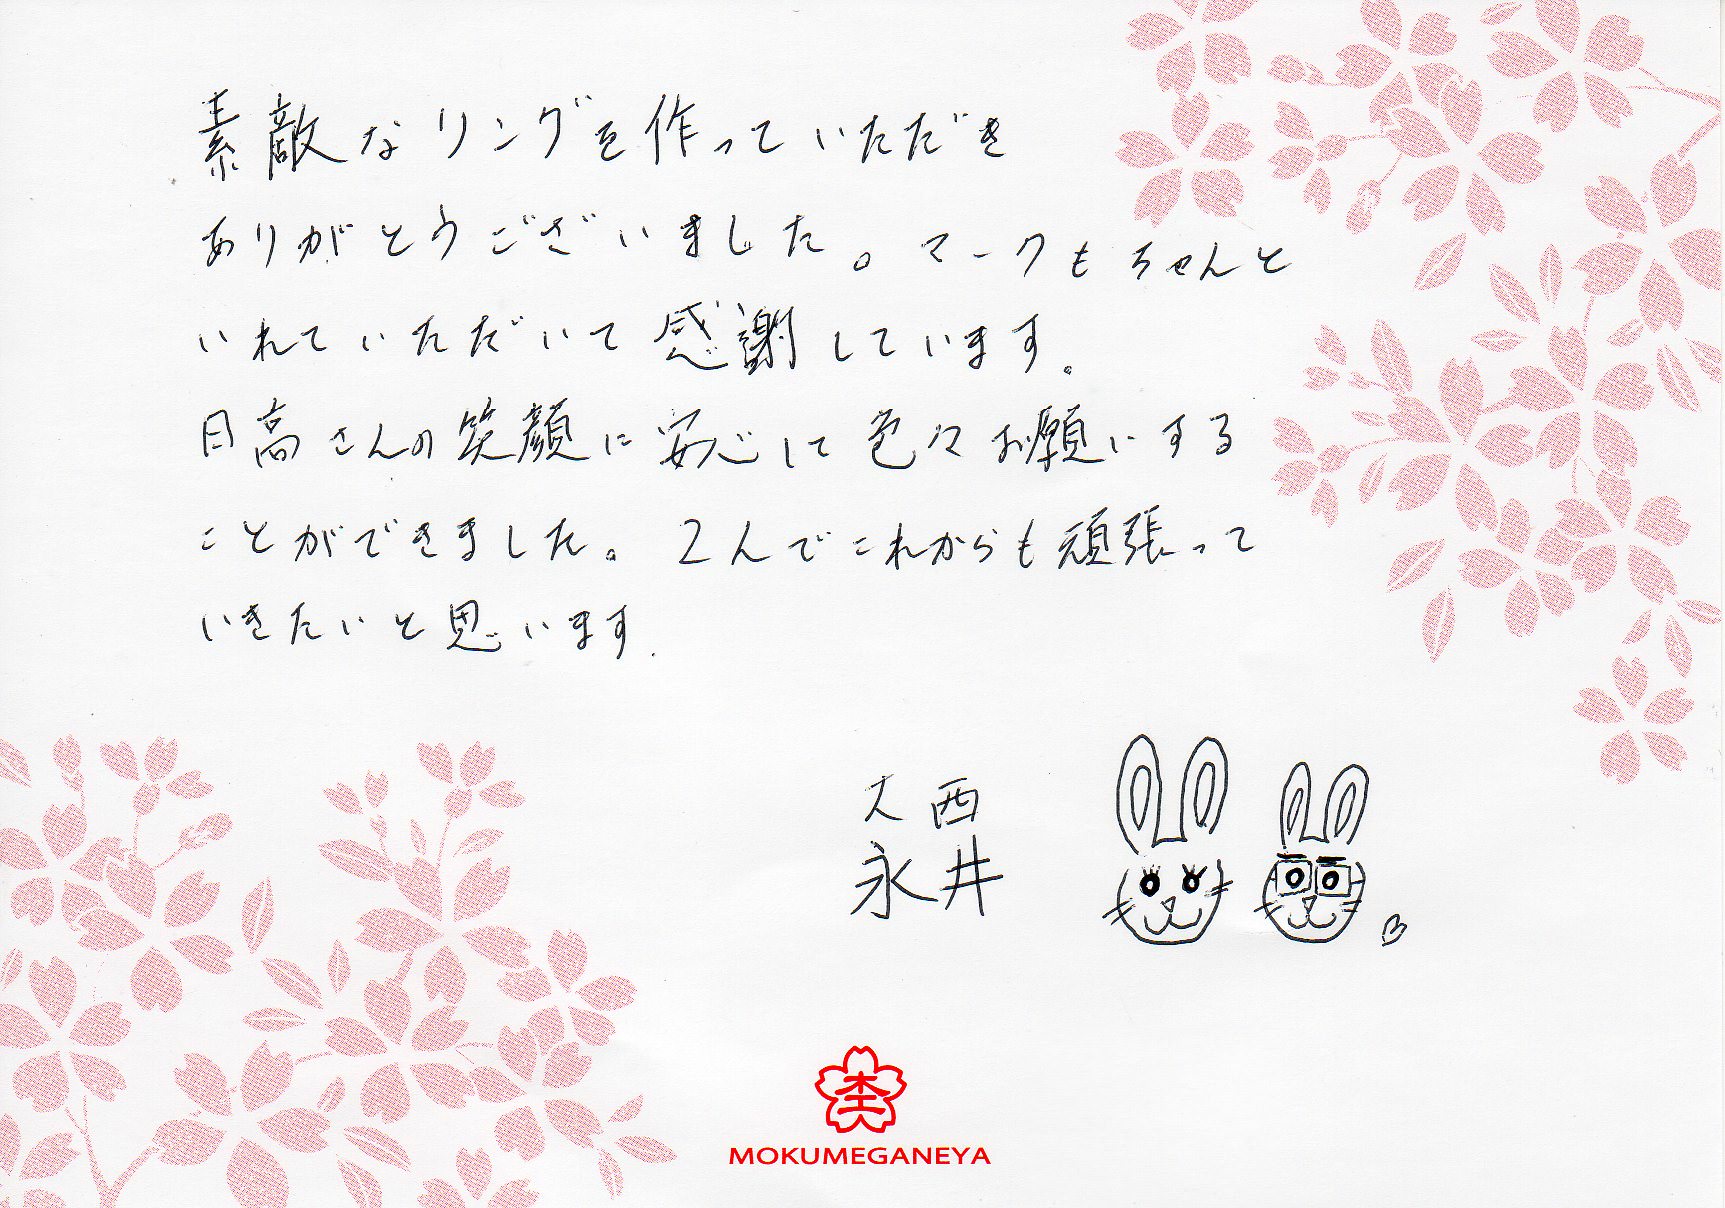 素敵なリングを作っていただき
ありがとうございました。マークもちゃんと
いれていただいて感謝しています。
日高さんの笑顔に安心して色々お願いする
ことができました。2人でこれからも頑張って
いきたいと思います.
大西
永井
MOKUMEGANEYA